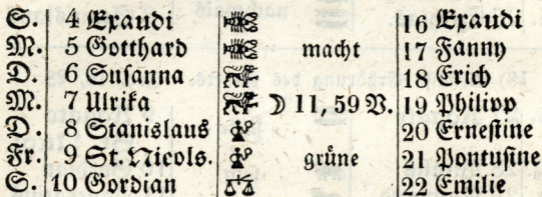 S. 4 Exaudi 16 Exaudi
M. 5 Gotthard macht 17 Fanny
D. 6 Susanna 18 Erich
M. 7 Ulrika ☽ 11, 59 V. 19 Philipp
D. 8 Stanislaus 20 Ernestine
Fr. 9 St. Nicols. grüne 21 Pontusine
S. 10 Gordian ♎ 22 Emilie